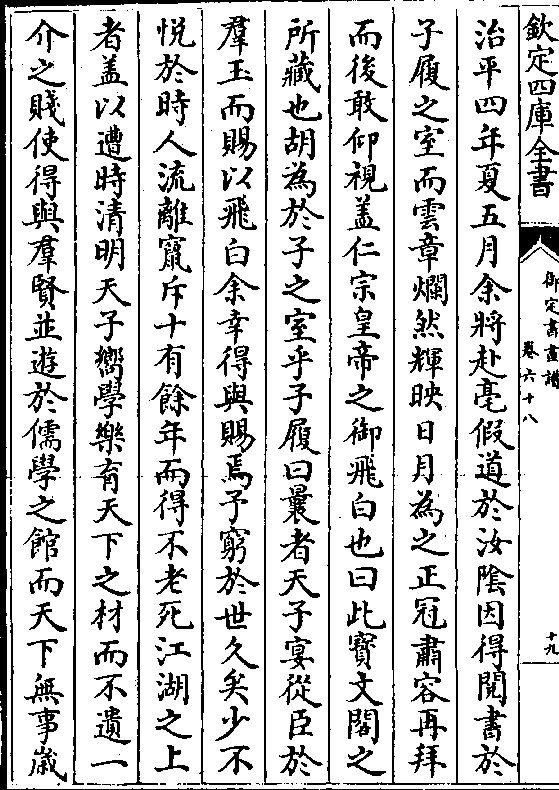 欽定四庫全書
御定書畫譜
卷六十八
十九
治平四年夏五月余將赴亳假道於汝陰因得閱書於
子履之室而雲章爛然輝映日月為之正冠肅容再拜
而後敢仰視蓋仁宗皇帝之御飛白也曰此寶文閣之
所藏也胡為於子之室乎子履曰曩者天子宴從臣於
羣玉而賜以飛白余幸得與賜焉予窮於世久矣少不
悅於時人流離竄斥十有餘年而得不老死江湖之上
者盖以遭時清明天子嚮學樂育天下之材而不遺一
介之賤使得與羣賢並遊於儒學之館而天下無事歲